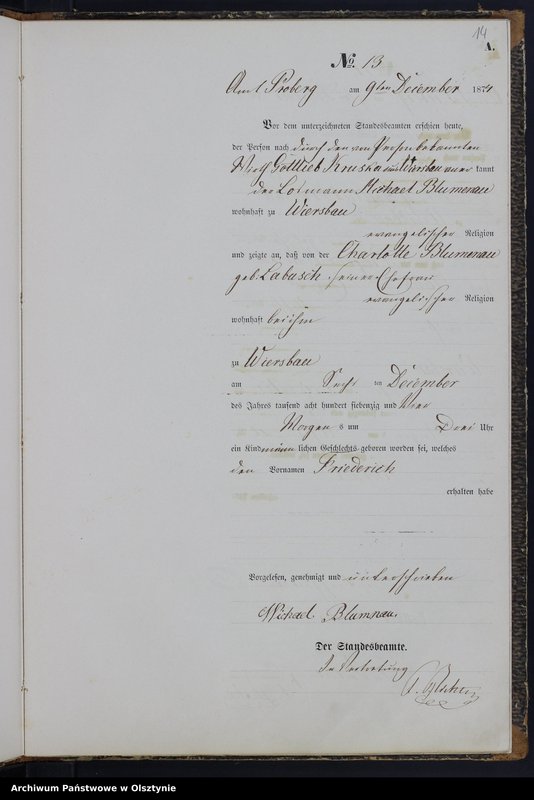 14
A.
No. 13
Amt Proberg am 9ten Dezember 1874
Vor dem unterzeichneten Standesbeamten erschien heute,
der Person nach durch den von Person bekannten
Gottlieb Kruska aus Wiersbau kannt
der Losmann Michael Blumenau
wohnhaft zu Wiersbau
evangelischer Religion
und zeigte an, daß von der Charlotte Blumenau
geb. Labusch seiner Ehefrau
evangelischer Religion
wohnhaft bei ihm
zu Wiersbau
am Sechs ten Dezember
des Jahres tausend acht hundert siebenzig und Vier
Morgen s um Drei Uhr
ein Kind männ lichen Geschlechts geboren worden sei, welches
den Vornamen Friederich
erhalten habe
Vorgelesen, genehmigt und unterschrieben
Michael Blumnau.
Der Standesbeamte.
In Vertretung
Archiwum Państwowe w Olsztynie